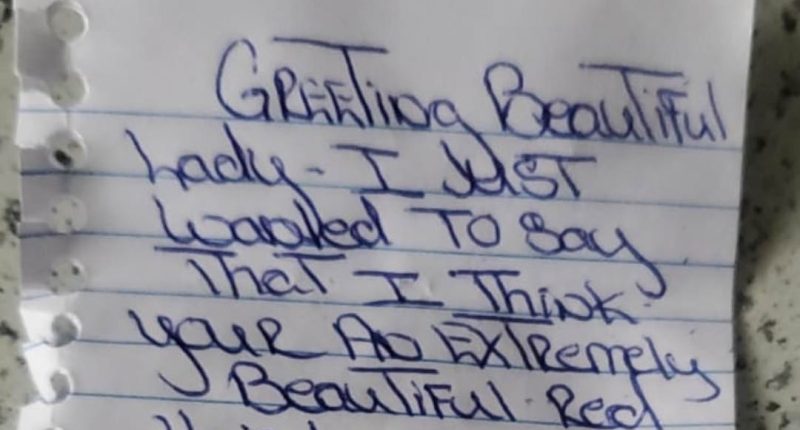 GREETING Beautiful
Lady - I JUST
wanted TO say
That I Think
your AN EXTREmely
Beautiful Red